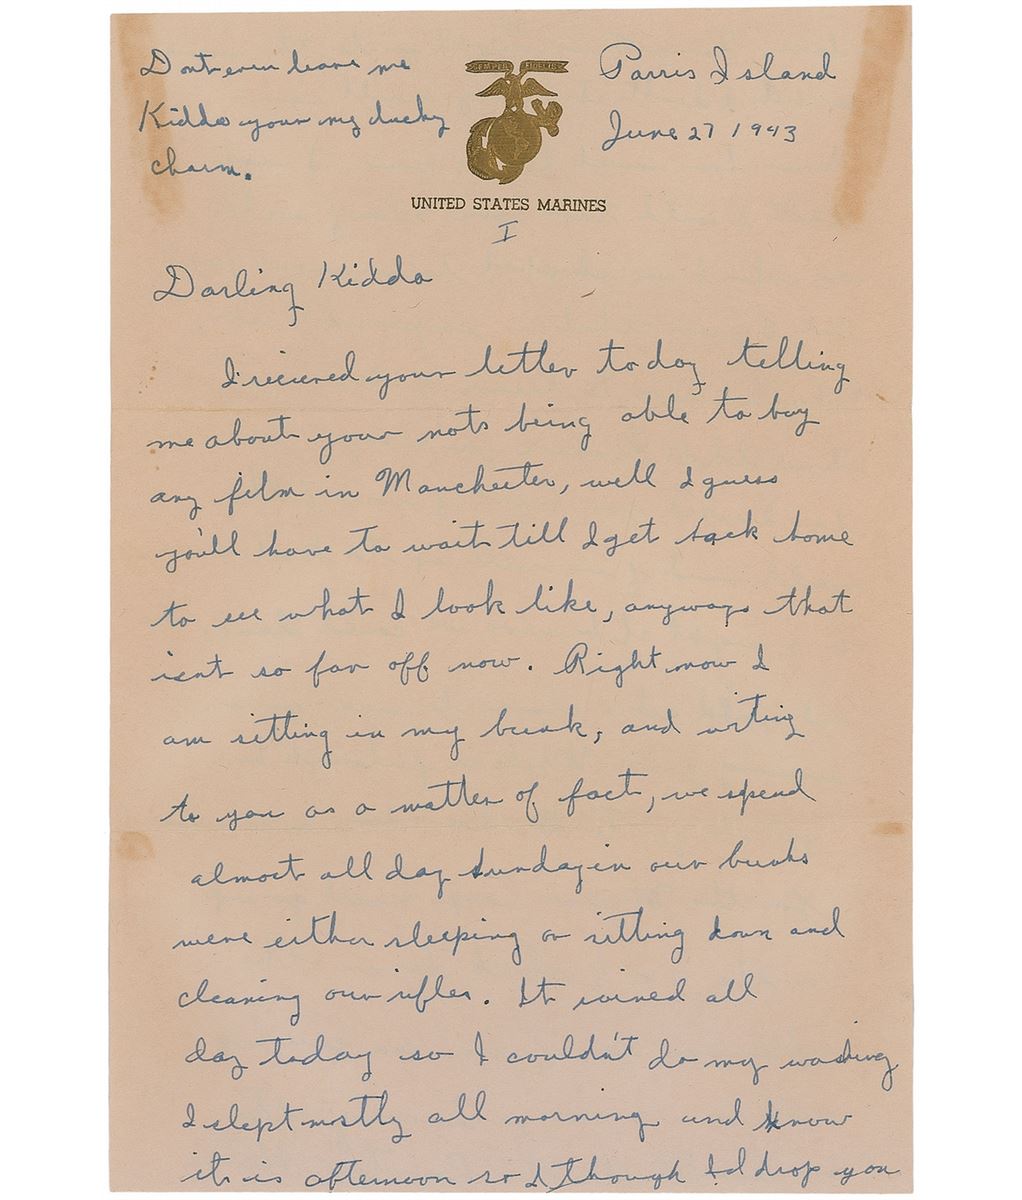 Dont ever leave me
Kiddo your my lucky
charm.
SEMPER FIDELIS
Parris Island
June 27 1943
UNITED STATES MARINES
I
Darling Kiddo
I recieved your letter today telling
me about your nots being able to buy
any film in Manchester, well I guess
you'll have to wait till I get back home
to see what I look like, anyways that
isnt so far off now. Right now I
am sitting in my bunk, and writing
to you as a matter of fact, we spend
almost all day Sunday in our bunks
were either sleeping or sitting down and
cleaning our rifles. It rained all
day today so I couldn't do my washing
I slept mostly all morning and know
it is afternoon so I though I'd drop you